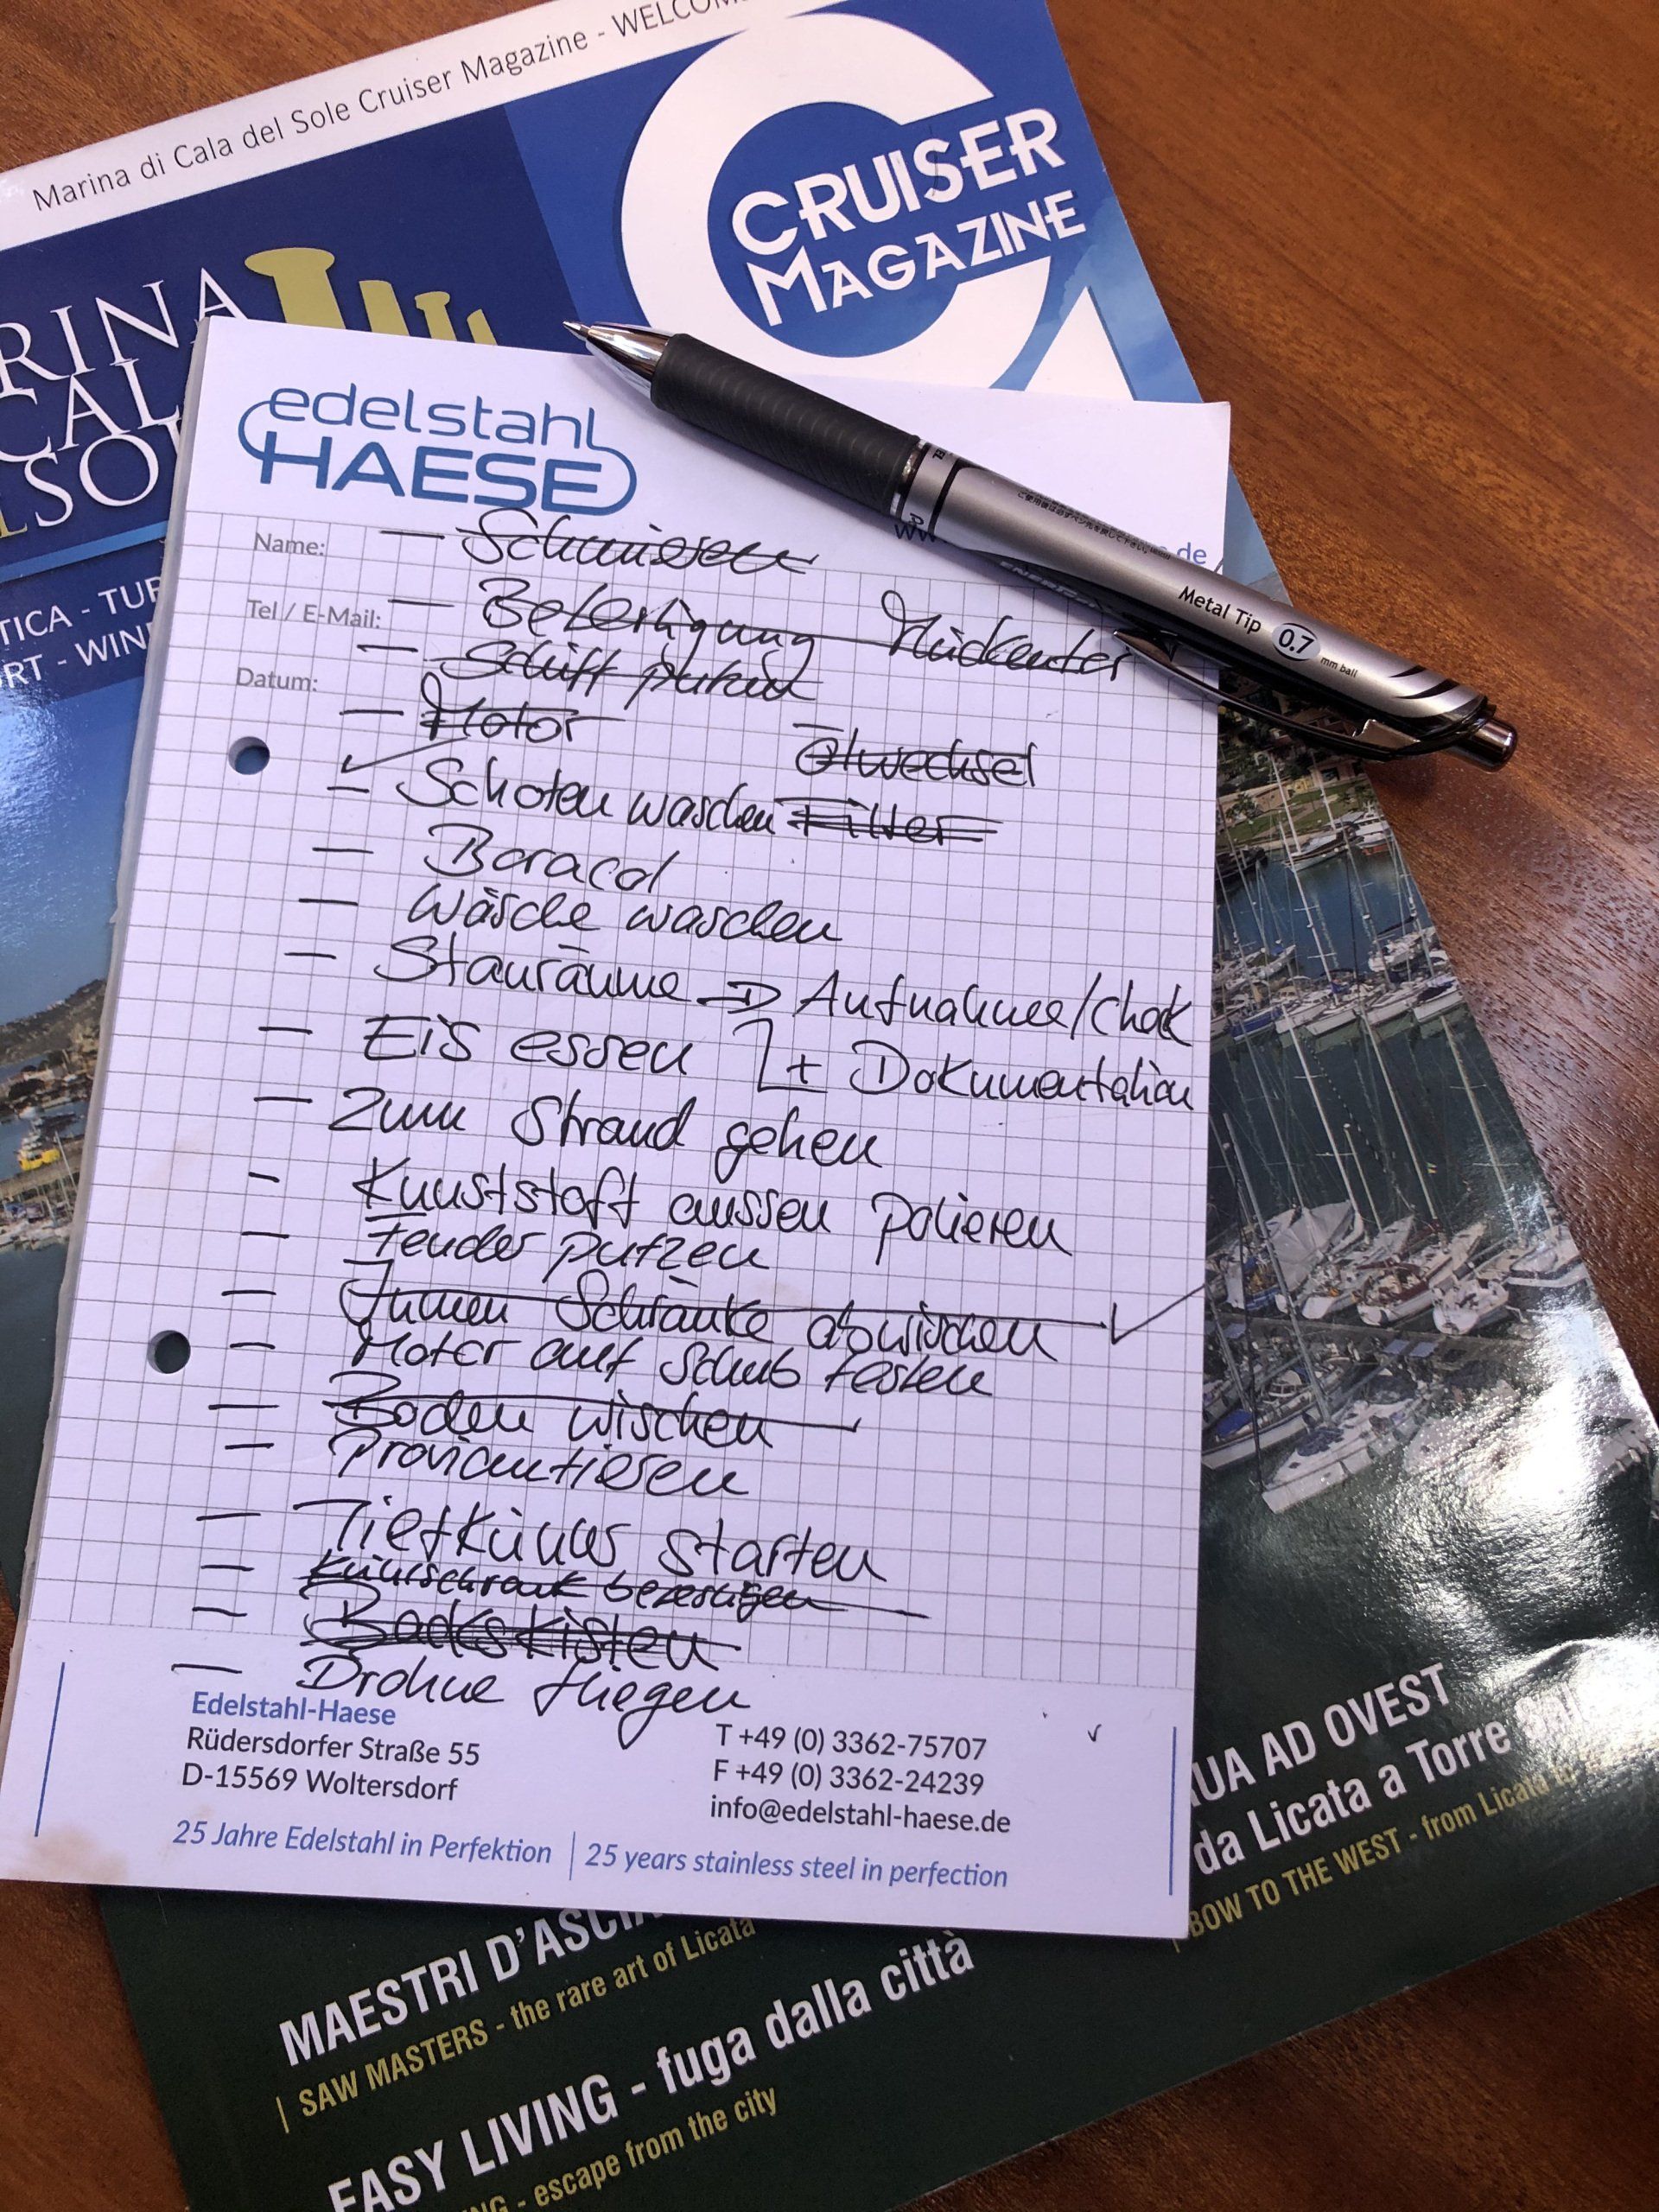 Marina di Cala del Sole Cruiser Magazine - WELCOM
CRUISER
MAGAZINE
RINA
CAL
SOL
TICA - TUR
RT - WIN
edelstahl
HAESE
de
Metal Tip 0.7 mm ball
Name: — Schmieren
Tel / E-Mail: — Befestigung Heckanker
— Schiff putzen
Datum:
— Motor
— Ölwechsel
— Schoten waschen — Filter
— Boracol
— Wäsche waschen
— Stauräume ⇒ Aufnahme/Chek
— Eis essen + Dokumentation
— Zum Strand gehen
- Kunststoff aussen polieren
— Fender putzen
— Innen Schränke abwischen ✓
— Motor auf Schub testen
— Boden wischen
— Proviantieren
— Tiefkühler starten
— Kühlschrank befestigen
— Backskisten
— Drohne fliegen
Edelstahl-Haese
Rüdersdorfer Straße 55
D-15569 Woltersdorf
T +49 (0) 3362-75707
F +49 (0) 3362-24239
info@edelstahl-haese.de
25 Jahre Edelstahl in Perfektion | 25 years stainless steel in perfection
UA AD OVEST
da Licata a Torre
BOW TO THE WEST - from Licata
MAESTRI D'ASCIA
SAW MASTERS - the rare art of Licata
EASY LIVING - fuga dalla città
NG - escape from the city